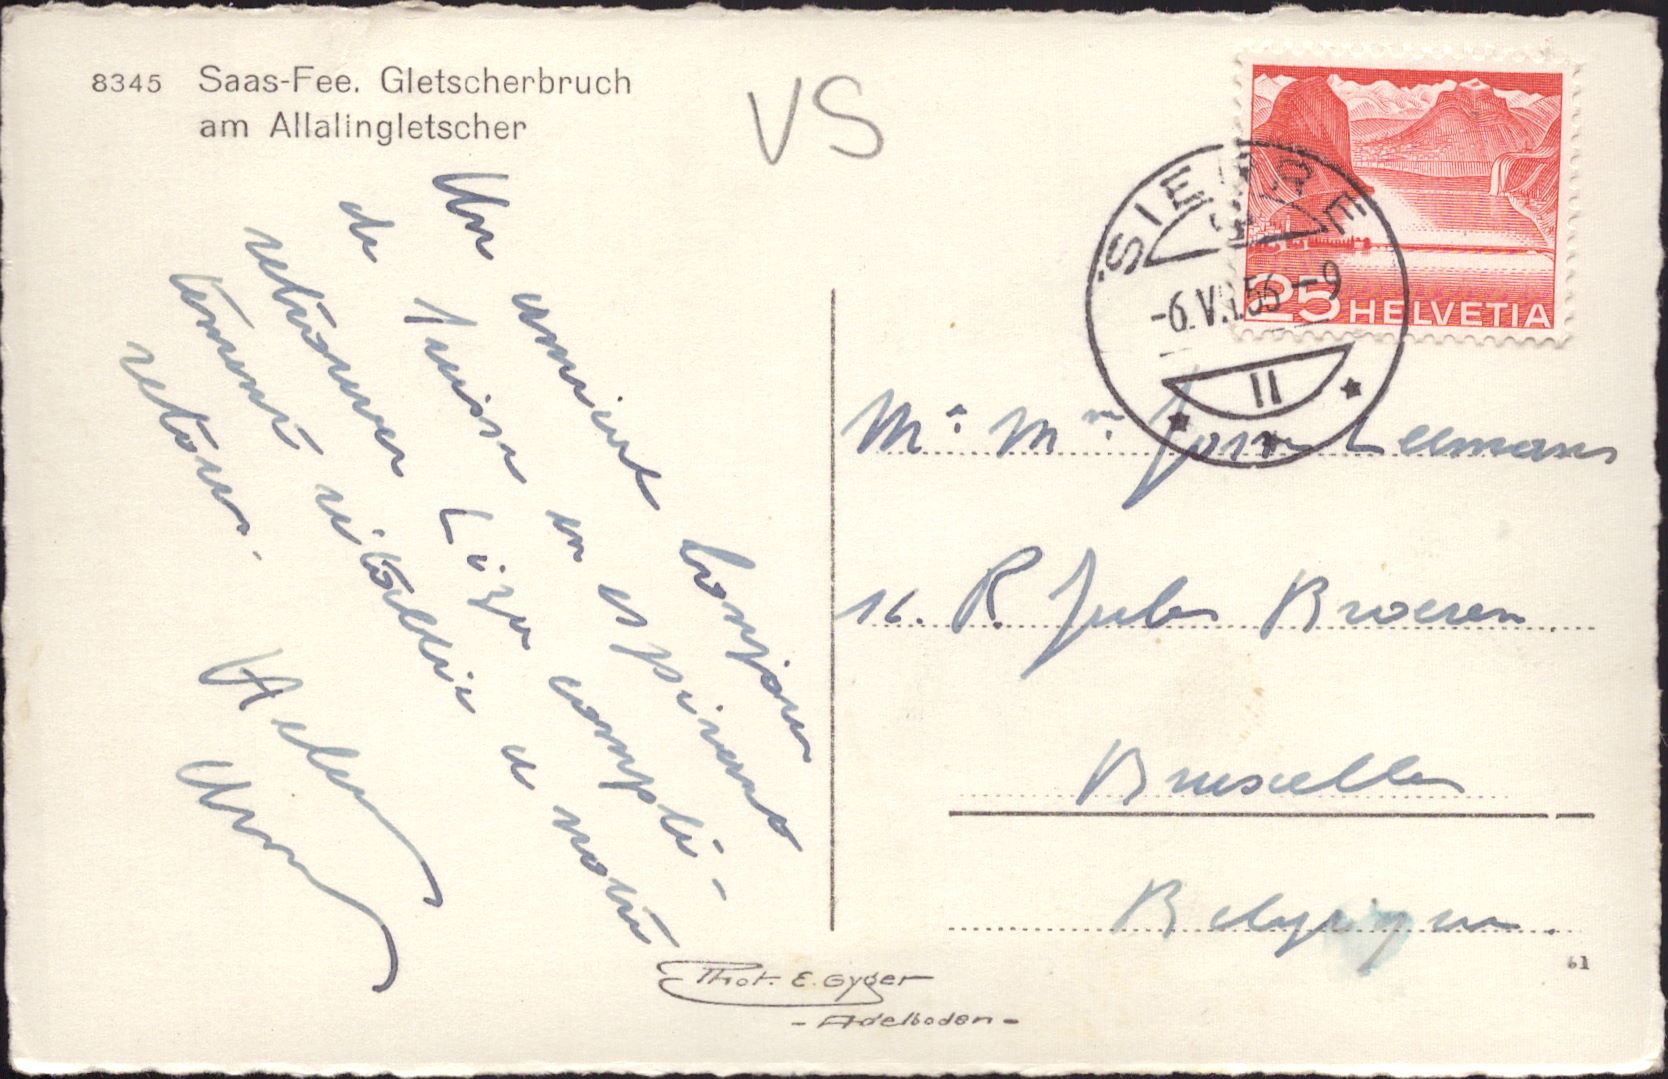 8345 Saas-Fee. Gletscherbruch
am Allalingletscher
VS
Un amical bonjour
de Suisse en espérant
retrouver Lize complè-
tement rétablie à notre
retour.
SIERRE
-6.V 56 -9
11
25 HELVETIA
Mr Mme Leemans
16. R. Jules Broeren
Bruxelles
Belgique.
61
Phot. E. Gyger
- Adelboden -